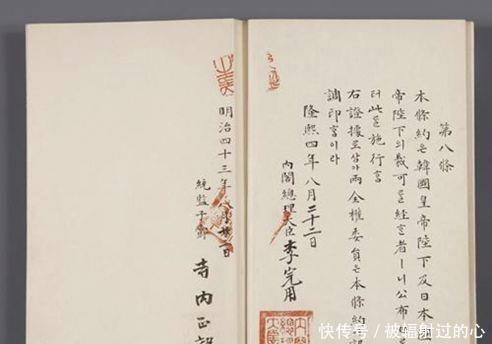 第八條
本條約은韓國皇帝陛下及日本國
帝陛下의裁可를經한者ㅣ니公布
터此를施行홈
右證據로삼아兩全權委員은本條約에記
調印홈이라
隆熙四年八月二十二日
內閣總理大臣 李完用
明治四十三年八月廿二日
統監子爵 寺內正毅
快传号 / 被辐射过的心